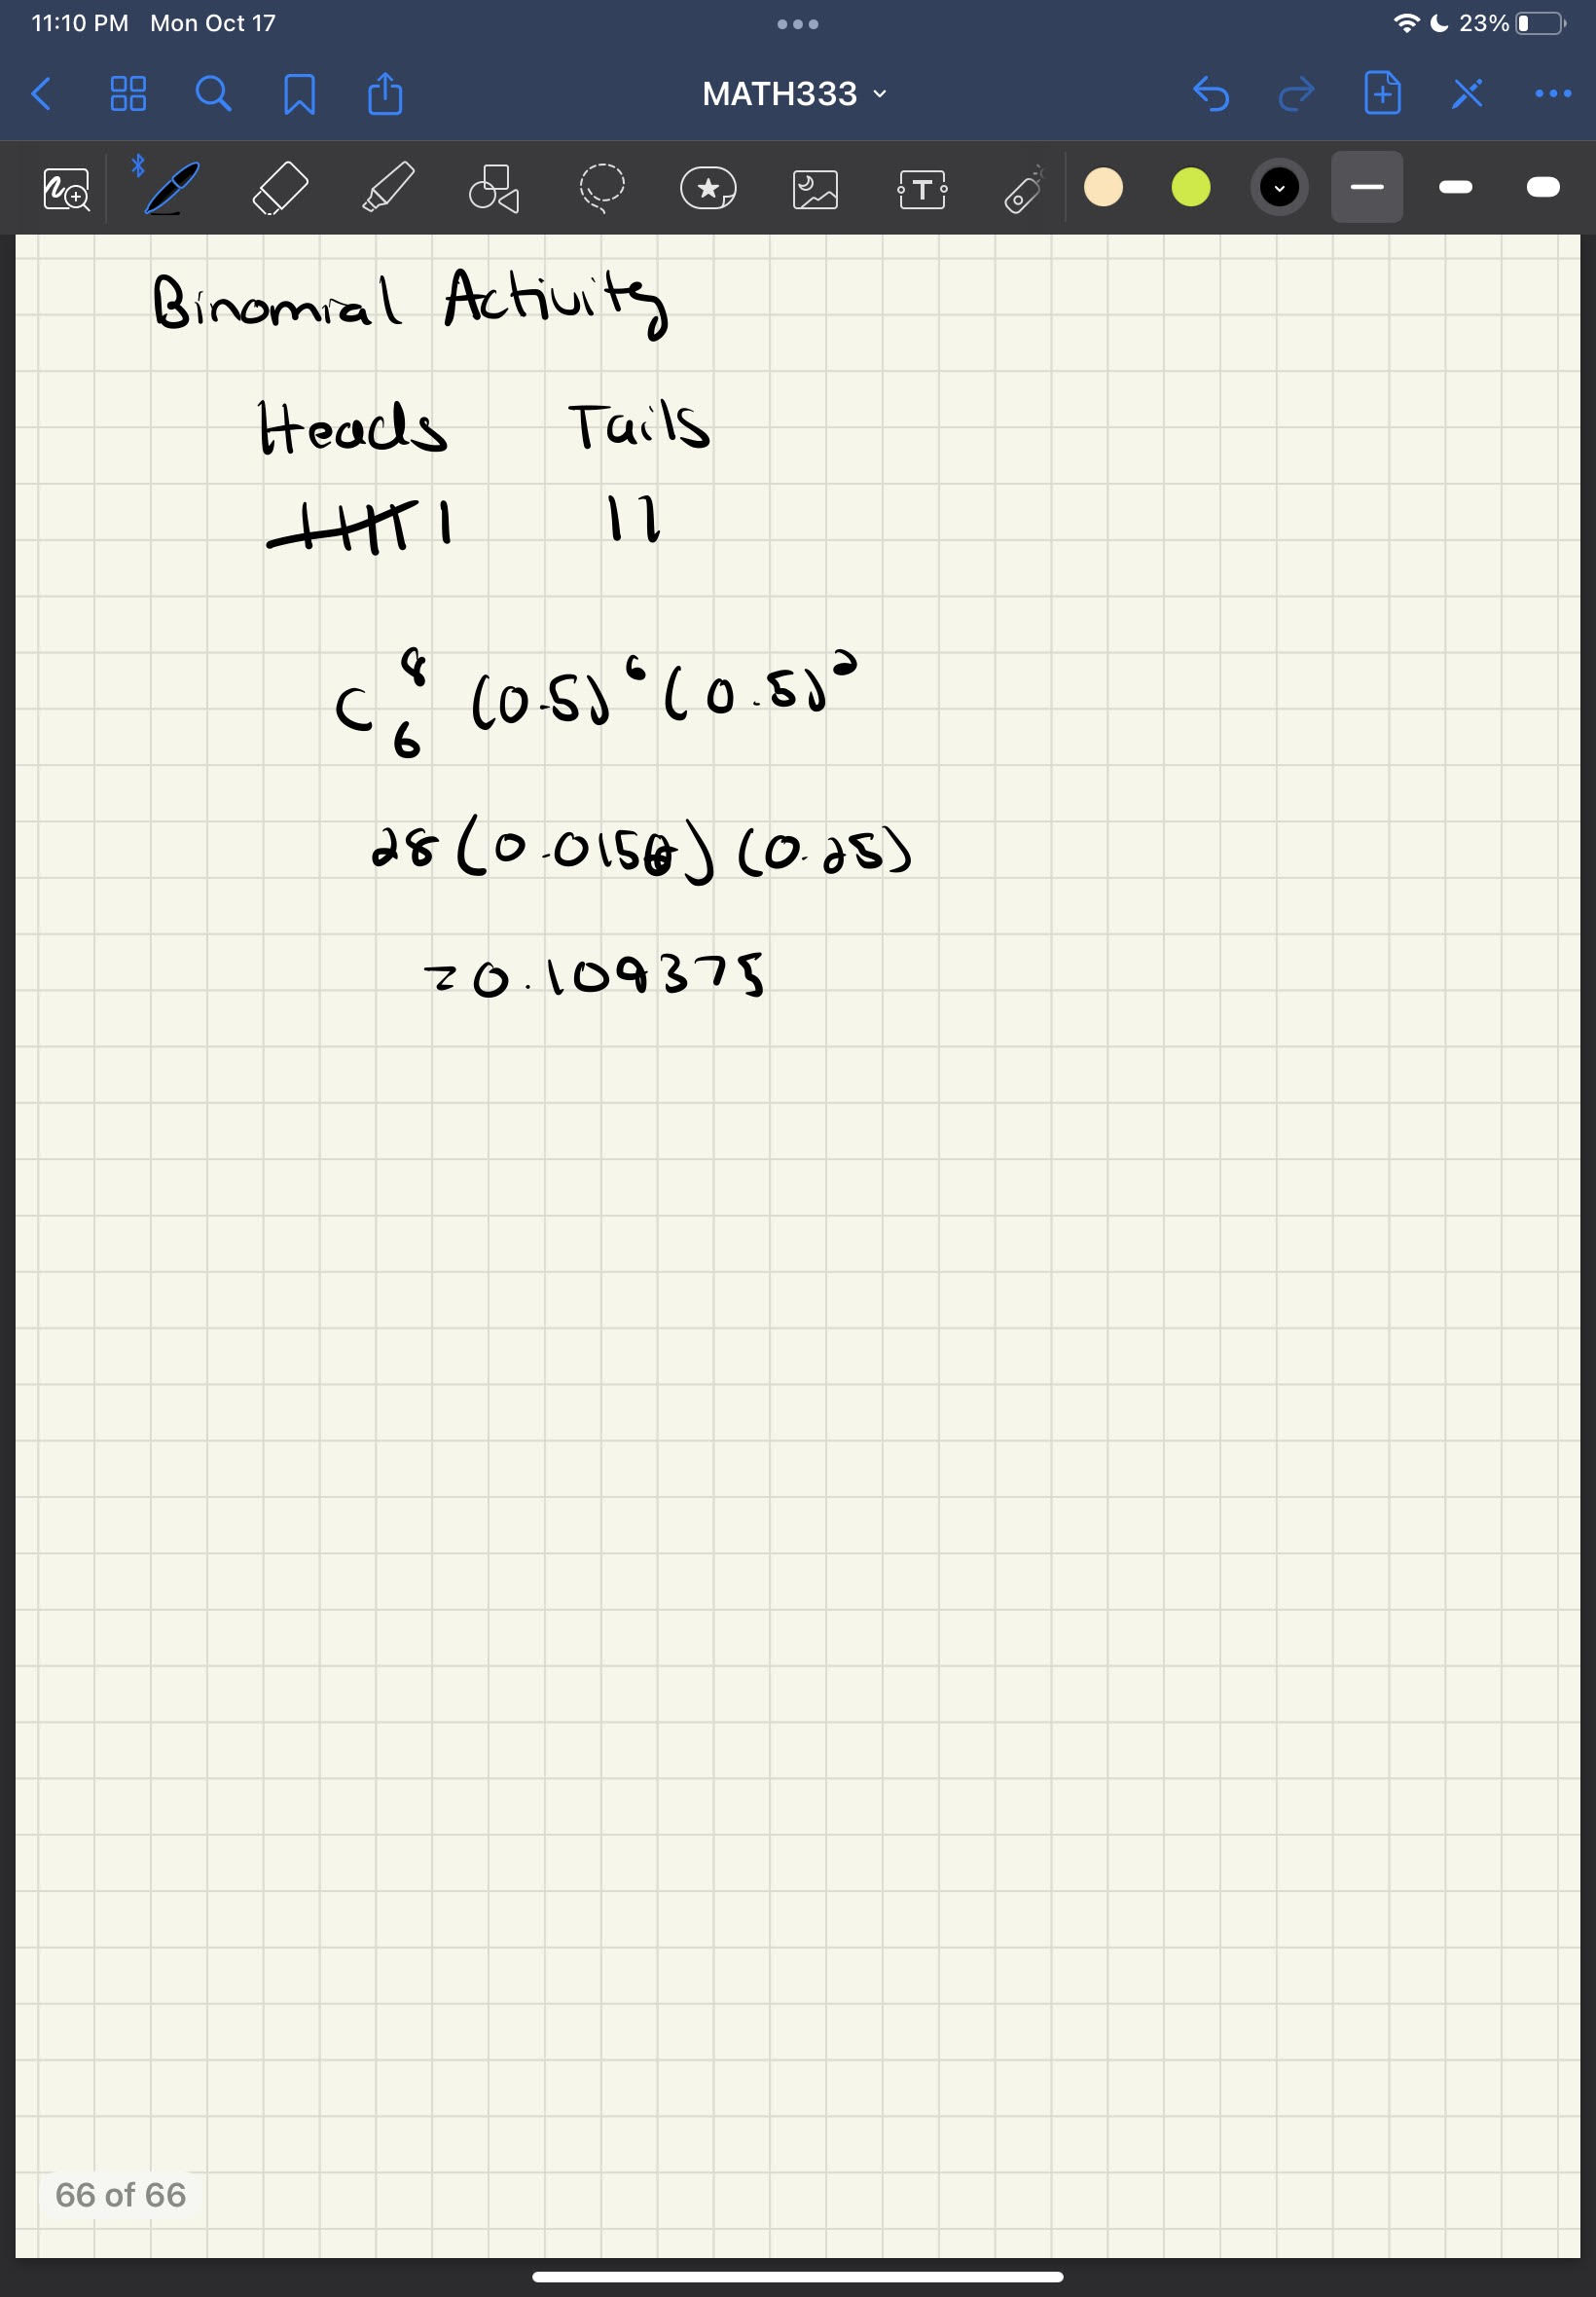 11:10 PM Mon Oct 17
23%
MATH333
T
Binomial Activity
Heads Tails
卌| ||
C⁸₆ (0.5)⁶ (0.5)²
28 (0.0156) (0.25)
= 0.109375
66 of 66